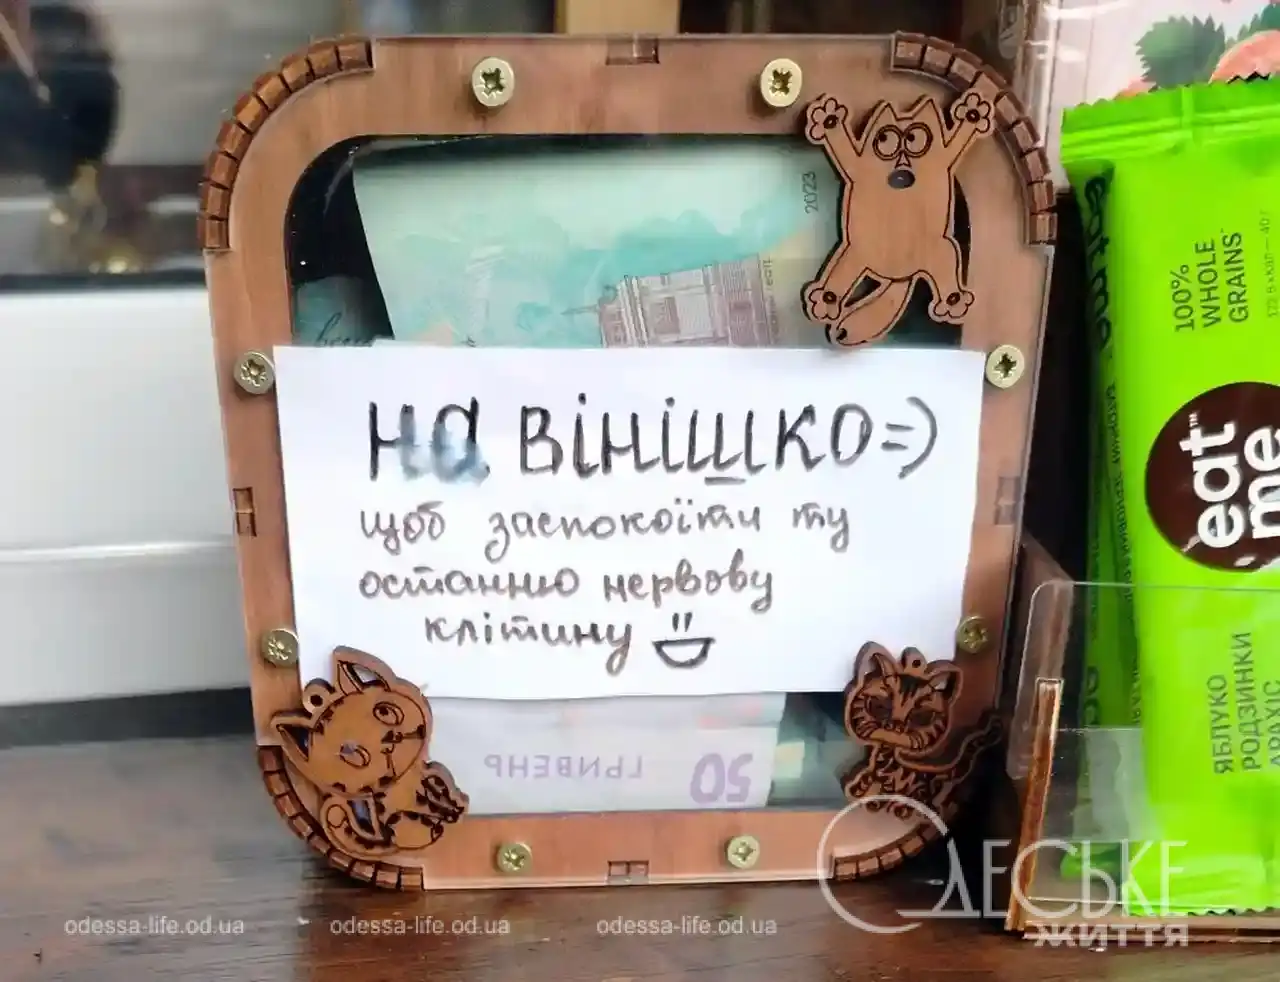 2023
на вінішко =)
щоб заспокоїти ту
останню нервову
клітину
50
ГРИВЕНЬ
eat me
100%
WHOLE
GRAINS
eat™
me
ЯБЛУКО
РОДЗИНКИ
АРАХІС
ОДЕСЬКЕ
ЖИТТЯ
odessa-life.od.ua odessa-life.od.ua odessa-life.od.ua